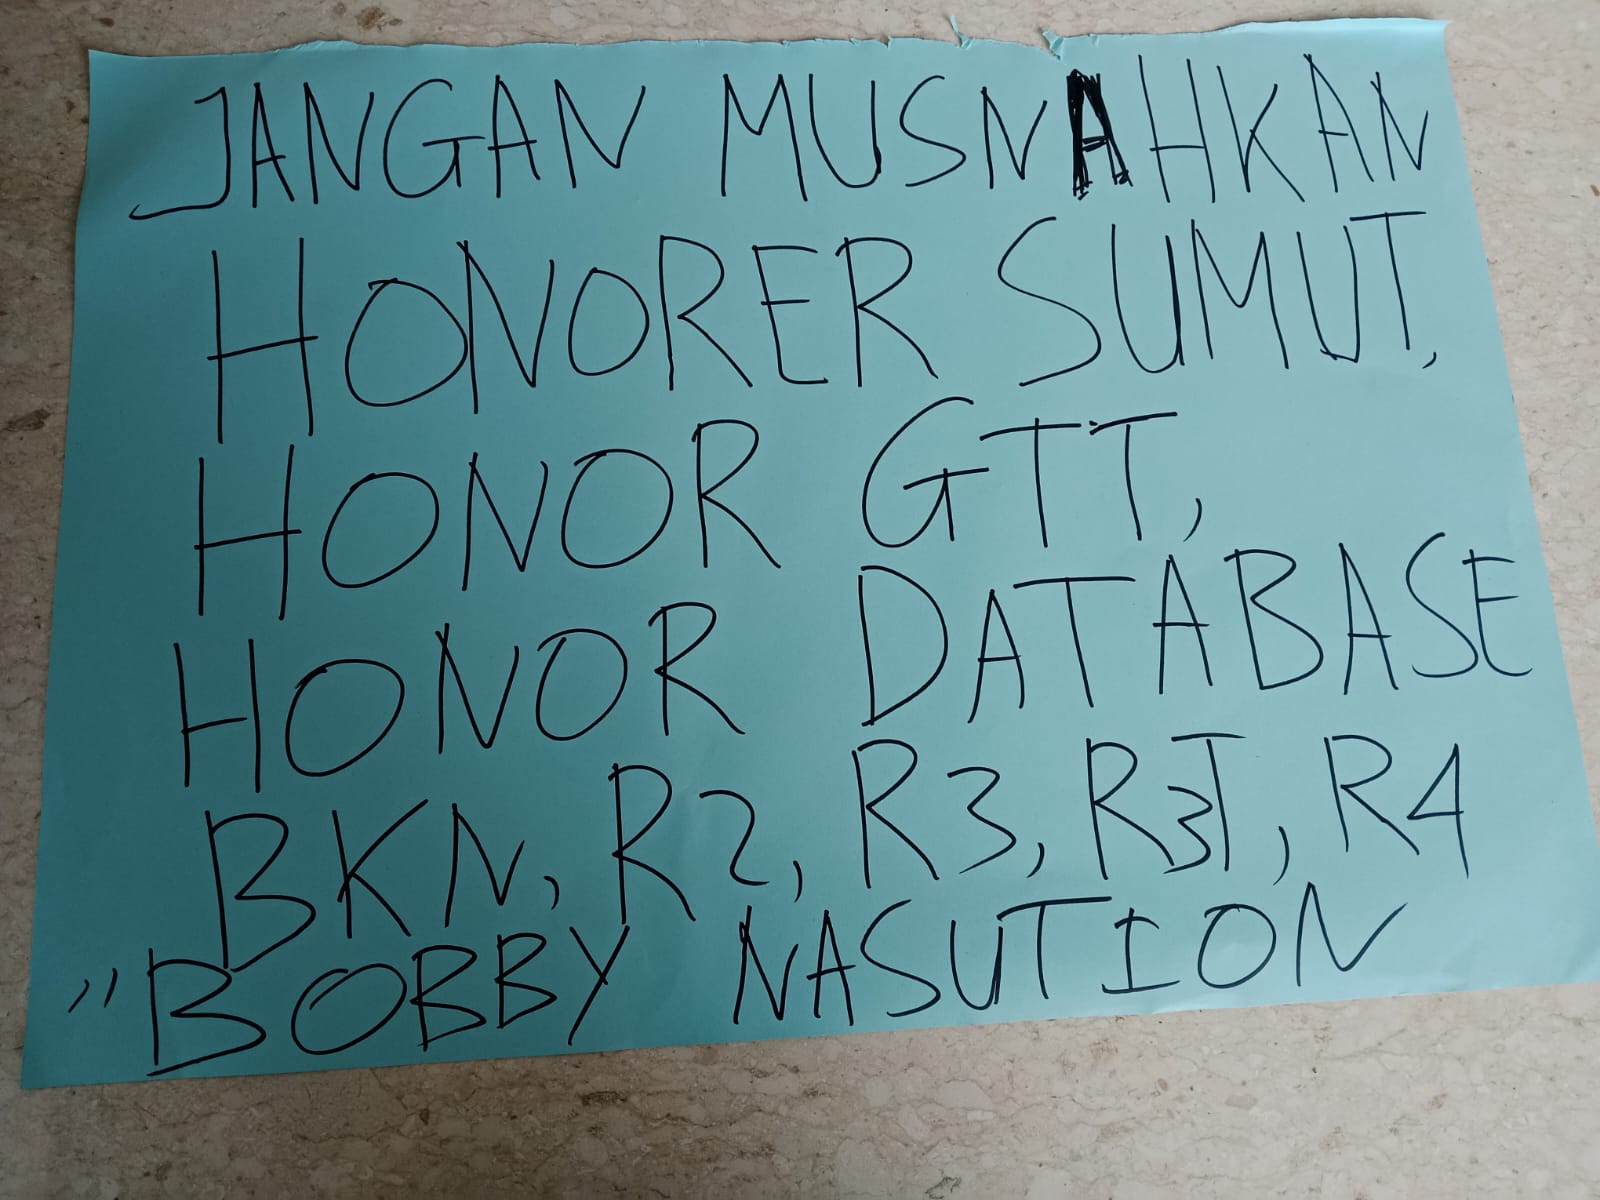 JANGAN MUSNAHKAN
HONORER SUMUT,
HONOR GTT,
HONOR DATABASE
BKN, R2, R3, R3T, R4
"BOBBY NASUTION